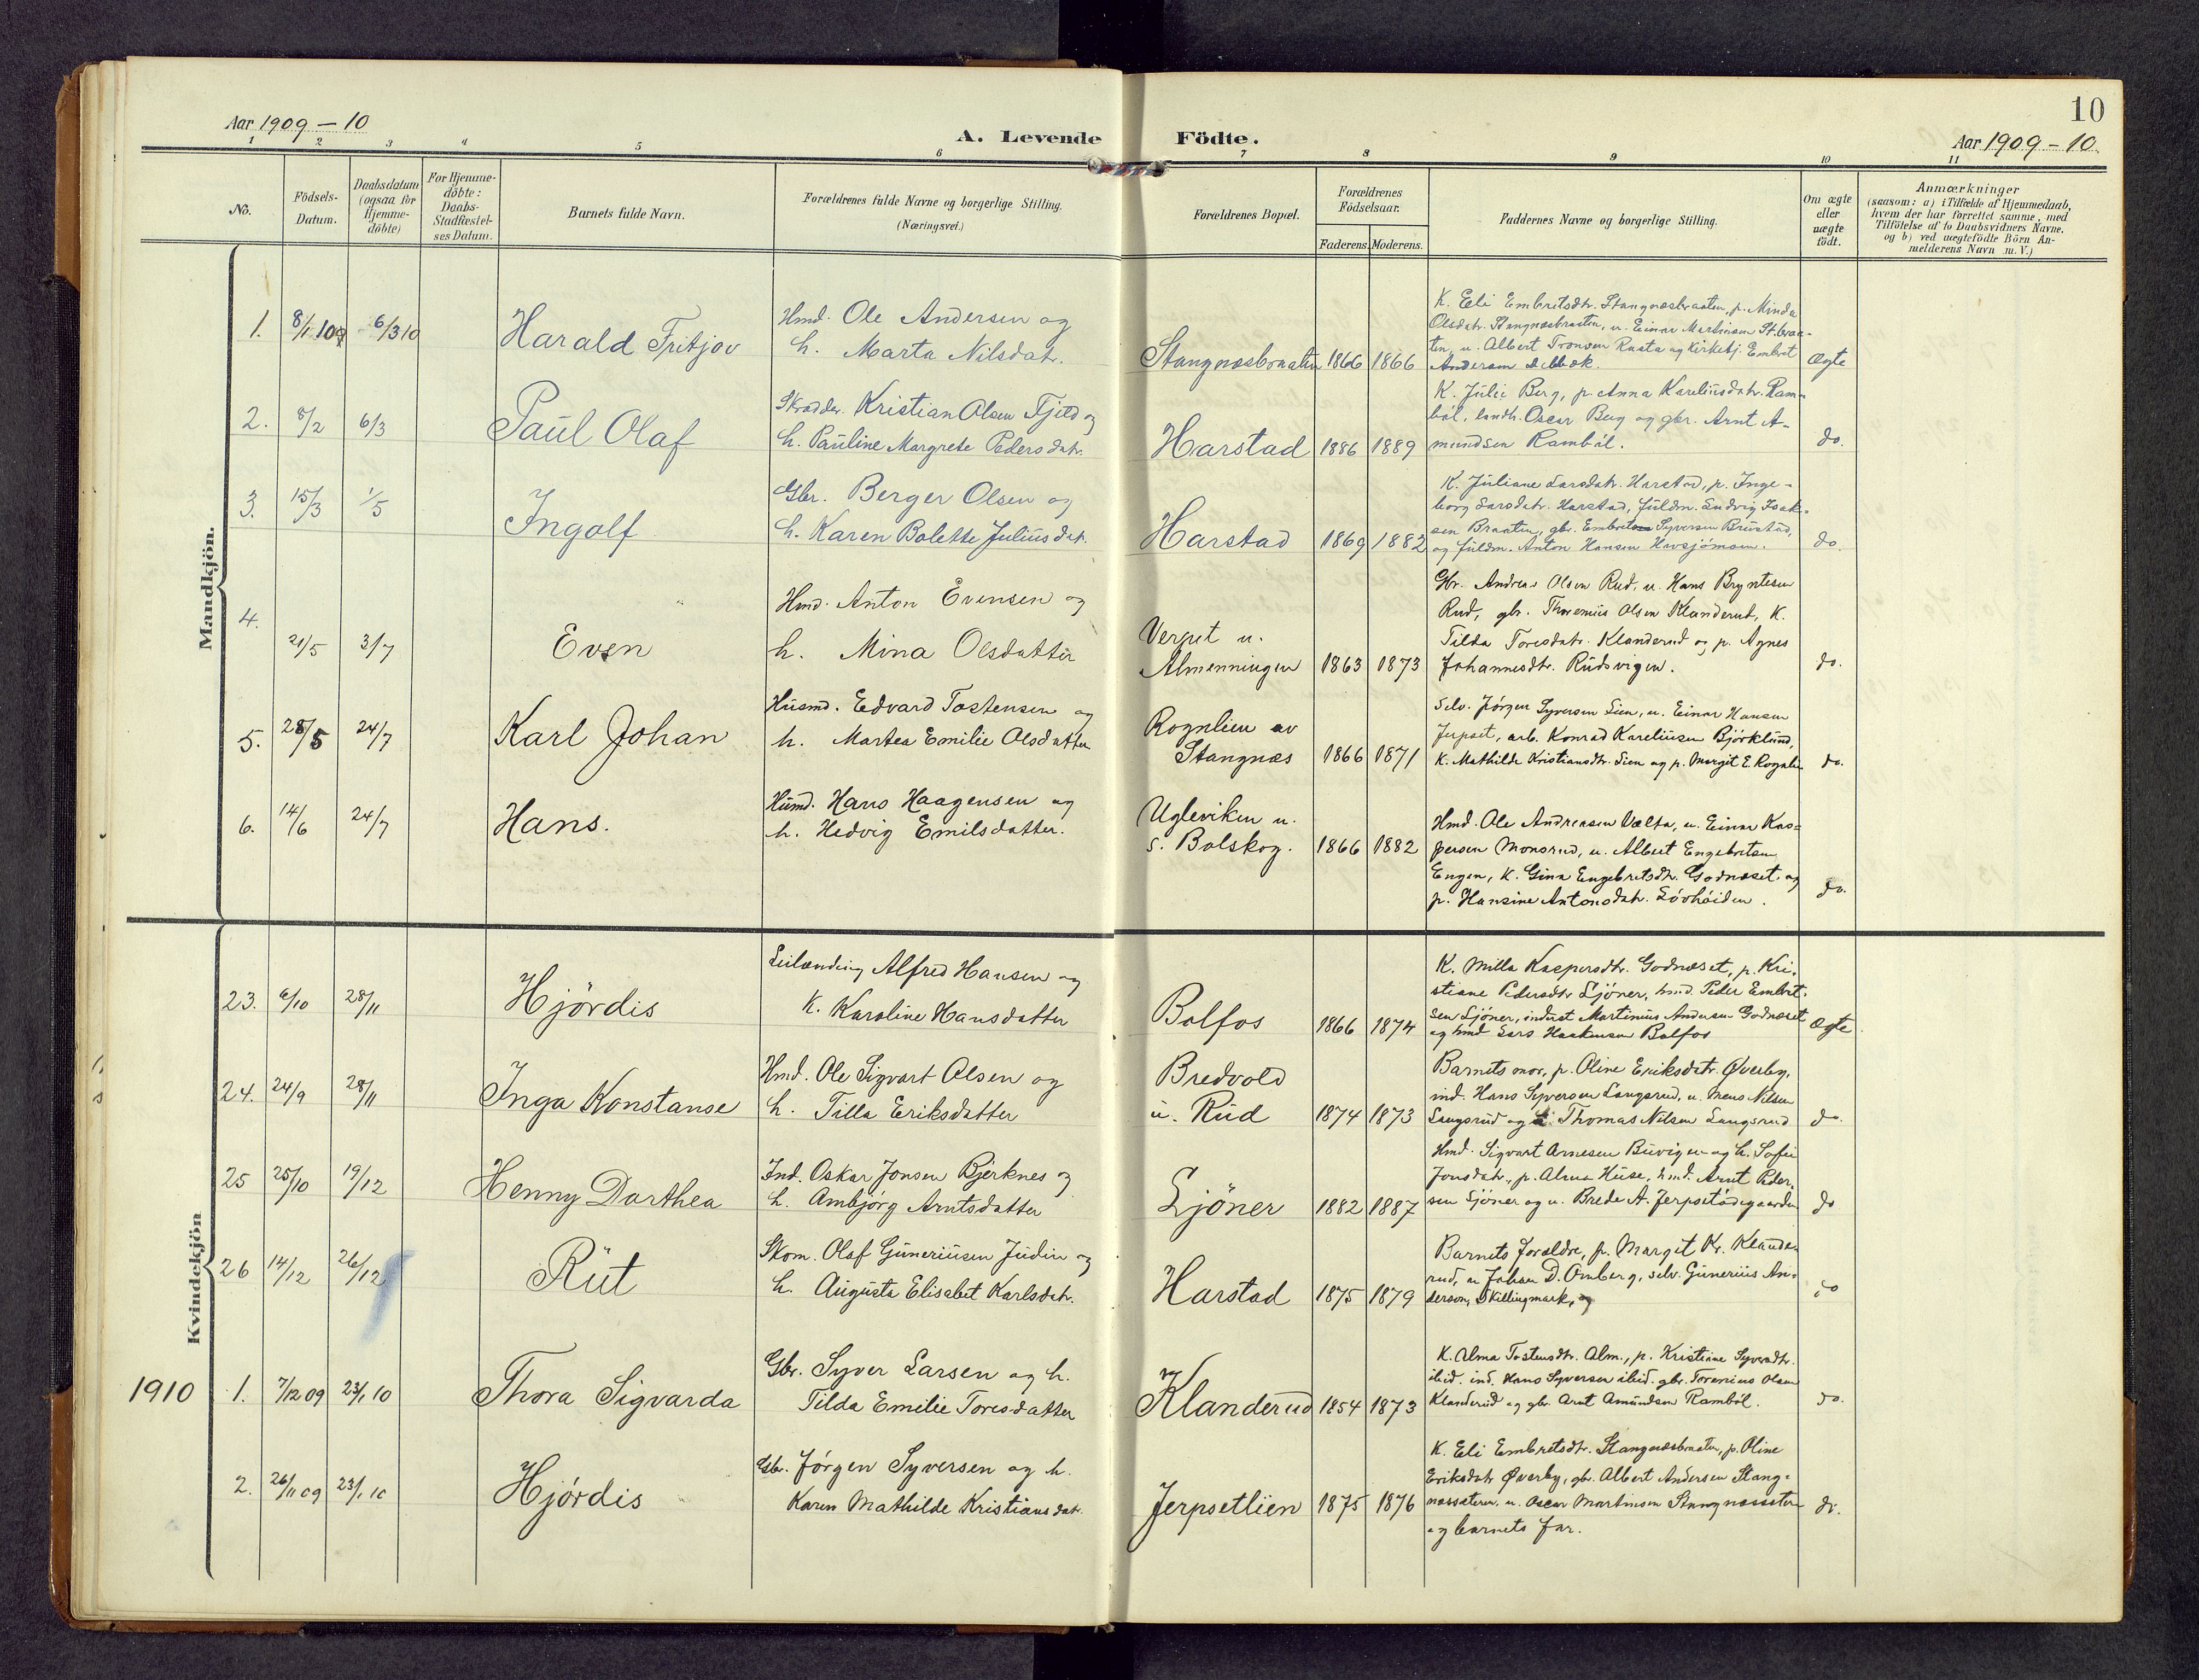 10
Aar 1909-10
A. Levende Födte.
Aar 1909-10.
1 2 3 4 5 6 7 8 9 10 11
No.
Födsels-
Datum.
Daabsdatum
(ogsaa for
Hjemme-
döbte)
For Hjemme-
döbte:
Daabs-
Stadfæstel-
ses Datum.
Barnets fulde Navn.
Forældrenes fulde Navne og borgerlige Stilling.
(Næringsvei.)
Forældrenes Bopæl.
Forældrenes
Födselsaar.
Faderens. Moderens.
Faddernes Navne og borgerlige Stilling.
Om ægte
eller
uægte
födt.
Anmærkninger
(saasom: a) i Tilfælde af Hjemmedaab,
hvem der har forrettet samme, med
Tilföielse af to Daabsvidners Navne.
og b) ved uægtefödte Börn An-
melderens Navn m. V.)
Mandkjön.
1. 8/1 6/3 10 Harald Fritjov
Hmd. Ole Andersen og
h. Marta Nilsdatr.
Stangnæsbraaten 1866 1866
K. Eli Embretsdtr. Stangnæsbraaten, p. Minda
Olsdatr. Stangnæsbraaten, u. Einar Martinsen St.braa-
ten, u. Albert Tronsen Rasta og Kirketj. Embret
Andersen
Ægte
2. 8/2 6/3 Paul Olaf
Skrædder. Kristian Olsen Fjeld og
h. Pauline Margrete Pedersdatr.
Harstad 1886 1889
K. Julie Berg, p. Anna Kareliusdatr. Ram-
böl, landh. Oscar Berg og gbr. Arnt A-
mundsen Ramböl.
do.
3. 15/3 1/5 Ingolf
Gbr. Berger Olsen og
h. Karen Bolette Juliusdat.
Harstad 1869 1882
K. Juliane Larsdatr. Harstad, p. Inge-
borg Larsdatr. Harstad, fuldm. Ludvig Isak-
sen Braaten, gbr. Embret Syversen Brustad,
og fuldm. Anton Hansen Havsjömoen.
do.
4. 21/5 3/7 Even
Hmd. Anton Evensen og
h. Mina Olsdatter
Verput u.
Almenningen 1863 1873
Gbr. Andreas Olsen Rud, u. Hans Bryntesen
Rud, gbr. Thorenius Olsen Klanderud, K.
Tilda Toresdatr. Klanderud og p. Agnes
Johannesdtr. Rudsvigen.
do.
5. 28/5 24/7 Karl Johan
Husmd. Edvard Tostensen og
h. Martea Emilie Olsdatter
Rognlien av
Stangnæs 1866 1871
Selv. Jörgen Syversen Lien, u. Einar Hansen
Jerpset, arb. Konrad Kareliusen Björklund,
K. Mathilde Kristiansdtr. Lien og p. Margit E. Rognlie
do.
6. 14/6 24/7 Hans.
Husmd. Hans Haagensen og
h. Hedvig Emilsdatter.
Ugleviken u.
s. Bolskog. 1866 1882
Hmd. Ole Andreasen Vælta, u. Einar Kas-
persen Monsrud, u. Albert Engebretsen
Engen, K. Gina Engebretsdtr. Godnæset, og
p. Hansine Antonsdatr. Lövhöiden.
do.
Kvindekjön
23. 6/10 28/11 Hjördis
Leilænding Alfred Hansen og
K. Karoline Hansdatter
Bolfos 1866 1874
K. Milla Kaspersdtr. Godnæset, p. Kri-
stiane Pedersdtr Ljöner, hmd. Peder Embret-
sen Ljöner, inderst Martinius Andersen Godnæset
og hmd Lars Haakensen Bolfos
Ægte
24. 24/9 28/11 Inga Konstanse
Hmd. Ole Sigvart Olsen og
h. Tilla Eriksdatter
Bredvold
u. Rud 1874 1873
Barnets mor, p. Oline Eriksdatr. Øverby,
ind. Hans Syversen Langsrud, u. Mens Nilsen
Langsrud og Thomas Nilsen Langsrud
do.
25 25/10 19/12 Henny Dorthea
Ind. Oskar Jonsen Bjerknes og
h. Ambjörg Arntsdatter
Ljöner 1882 1887
Hmd. Sigvart Arnesen Buvigen og h. Sofie
Jonsdatr., p. Alma Huse, hmd. Arnt Peder-
sen Ljöner og u. Brede A. Jerpsetödegaarden
do
26 14/12 26/12 Rut
Skom. Olaf Guneriusen Judin og
h. Augusta Elisabet Karlsdatr.
Harstad 1875 1879
Barnets forældre, p. Margit Kr. Klande-
rud, u Johan D. Omberg, selv. Gunerius An-
derson, Skillingmark, og
do
1910 1. 7/12 09 23/1 10 Thora Sigvarda
Gbr. Syver Larsen og h.
Tilda Emilie Toresdatter
Klanderud 1854 1873
K. Alma Tostensdtr. Alm., p. Kristiane Syversdtr.
ibid. ind. Hans Syversen ibid. gbr. Torenius Olsen
Klanderud og gbr. Arnt Amundsen Ramböl.
do.
2. 26/11 09 23/1 10 Hjördis
Gbr. Jörgen Syversen og h.
Karen Mathilde Kristiansdat.
Jerpsetlien 1875 1876
K. Eli Embretsdtr. Stangnæsbraaten, p. Oline
Eriksdatr Øverby, gbr. Albert Andersen Stang-
næssæteren, u. Oscar Martinsen Stangnæssæter
og barnets far.
do.